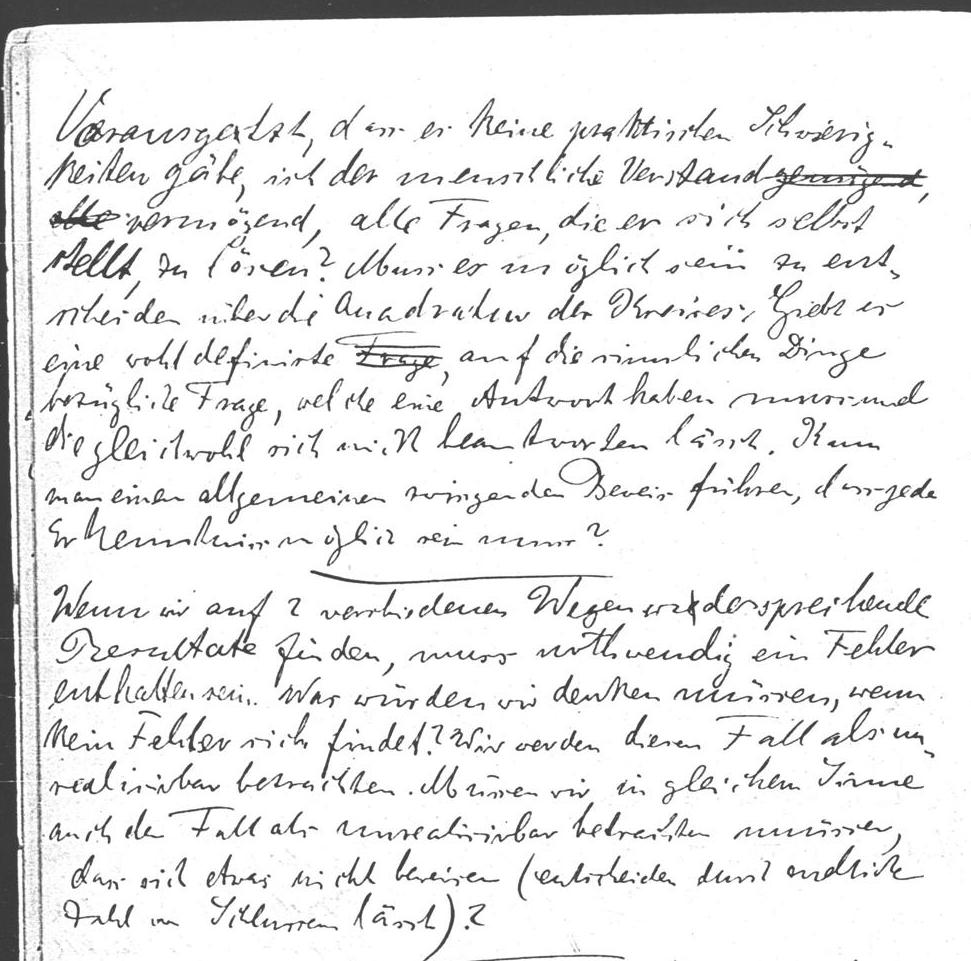 Vorausgesetzt, dass es keine praktischen Schwierig-
keiten gäbe, ist der menschliche Verstand genügend,
alle vermögend, alle Fragen, die er sich selbst
stellt, zu lösen? Muss es möglich sein zu ent-
scheiden über die Quadratur des Kreises, Giebt es
eine wohl definirte Frage, auf die sinnlichen Dinge
bezügliche Frage, welche eine Antwort haben muss und
die gleichwohl sich nicht beantworten lässt. Kann
man einen allgemeinen zwingenden Beweis führen, dass jede
Erkenntniss möglich sein muss?
Wenn wir auf 2 verschiedenen Wegen widersprechende
Resultate finden, muss nothwendig ein Fehler
enthalten sein. Was würden wir denken müssen, wenn
kein Fehler sich findet? Wir werden diesen Fall als un-
realisirbar betrachten. Müssen wir in gleichem Sinne
auch den Fall als unrealisirbar betrachten müssen,
dass sich etwas nicht beweisen (entscheiden durch endliche
Zahl von Schlüssen lässt)?